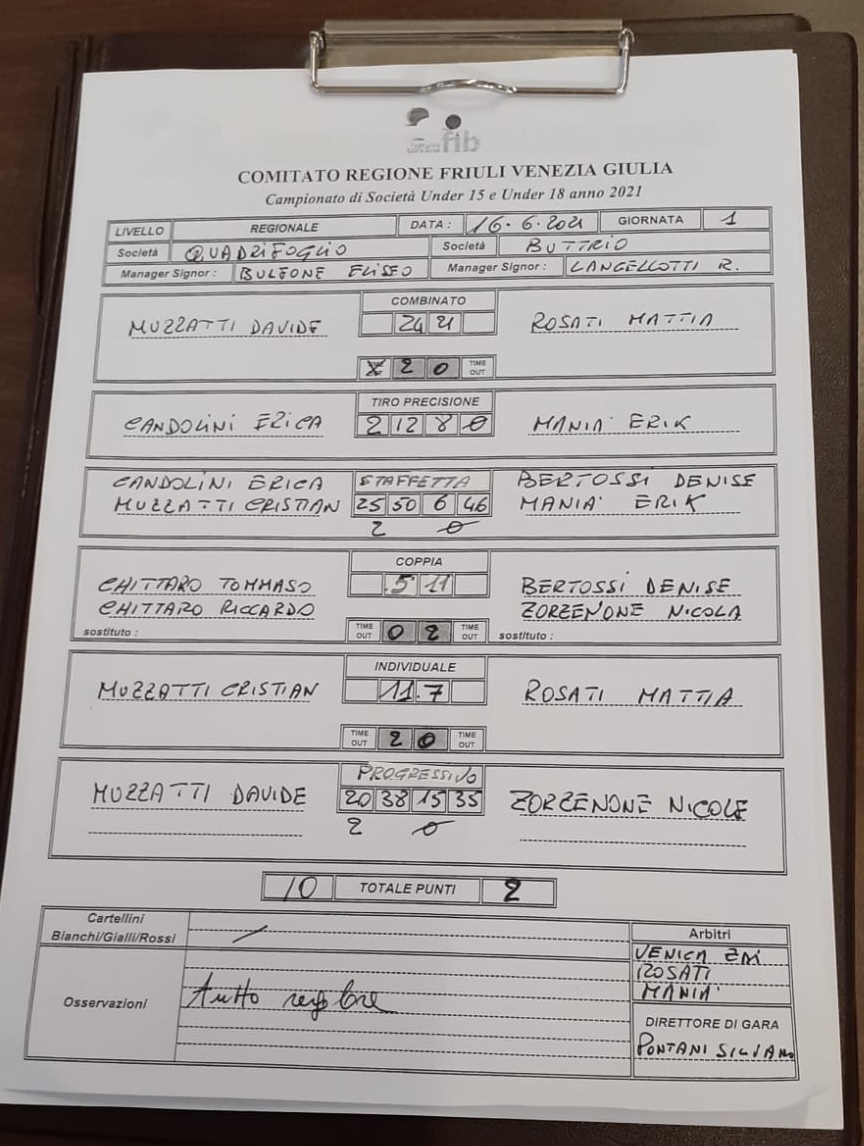 fib
COMITATO REGIONE FRIULI VENEZIA GIULIA
Campionato di Società Under 15 e Under 18 anno 2021
LIVELLO REGIONALE DATA : 16.6.2021 GIORNATA 1
Società QUADRIFOGLIO Società BUTTRIO
Manager Signor : BULFONE ELISEO Manager Signor : LANGELLOTTI R.
COMBINATO
MUZZATTI DAVIDE 24 21 ROSATI MATTIA
2 0 TIME OUT
TIRO PRECISIONE
CANDOLINI ERICA 2 12 8 0 MANIA' ERIK
CANDOLINI ERICA STAFFETTA BERTOSSI DENISE
MUZZATTI CRISTIAN 25 50 6 46 MANIA' ERIK
2 0
COPPIA
CHITTARO TOMMASO 5 11 BERTOSSI DENISE
CHITTARO RICCARDO ZORZENONE NICOLA
sostituto : TIME OUT 0 2 TIME OUT sostituto :
INDIVIDUALE
MUZZATTI CRISTIAN 11.7 ROSATI MATTIA
TIME OUT 2 0 TIME OUT
PROGRESSIVO
MUZZATTI DAVIDE 20 38 15 35 ZORZENONE NICOLE
2 0
10 TOTALE PUNTI 2
Cartellini
Bianchi/Gialli/Rossi /
Arbitri
VENICA
ROSATI
MANIA'
Osservazioni tutto regolare
DIRETTORE DI GARA
PONTANI SILVANO